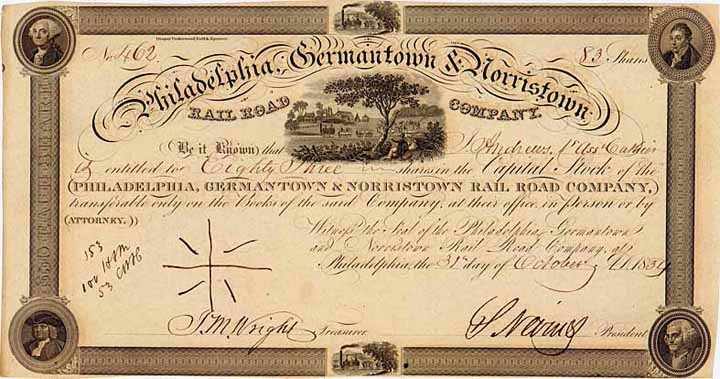 Draper Underwood Bald & Spencer
No. 462.
83 Shares
Philadelphia, Germantown & Norristown
RAIL ROAD COMPANY.
Be it Known that S. Andrews, 1st Ass. Cashier
is entitled to Eighty Three shares in the Capital Stock of the
(PHILADELPHIA, GERMANTOWN & NORRISTOWN RAIL ROAD COMPANY,)
transferable only on the Books of the said Company, at their office, in person or by
(ATTORNEY.)
Witness the Seal of the Philadelphia, Germantown
and Norristown Rail Road Company, at
Philadelphia, the 31st day of October 1834
153
53
J. M. Wright Treasurer
S Nevins President
$50 EACH SHARE